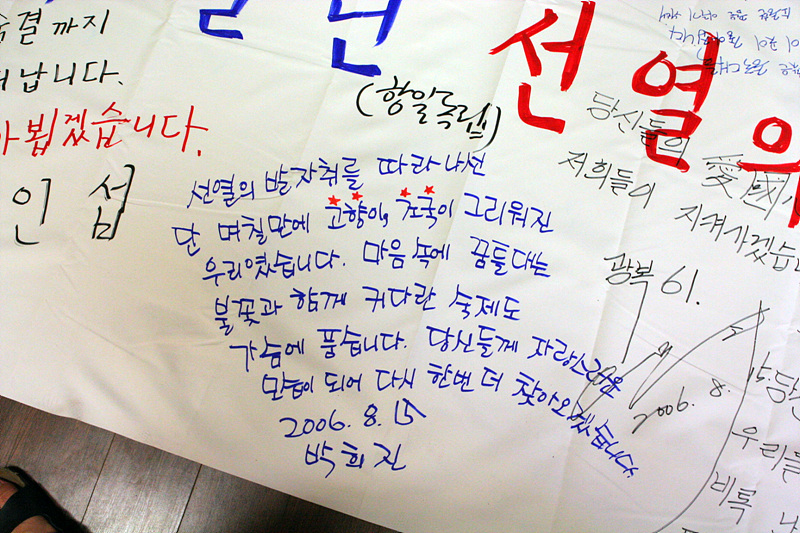 결까지
납니다.
뵙겠습니다.
인 섭
선열의
(항일독립)
선열의 발자취를 따라 나선
단 며칠만에 고향이, 조국이 그리워진
우리였습니다. 마음 속에 꿈틀대는
불꽃과 함께 커다란 숙제도
가슴에 품습니다. 당신들께 자랑스러운
모습이 되어 다시 한번 더 찾아오겠습니다.
2006. 8. 15
박희진
당신들의 愛國
저희들이 지켜가겠습니
광복 61.
2006. 8. 15
우리들
비록